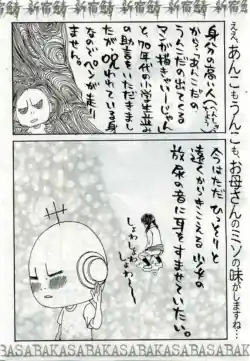 新宿鮫 新宿鮫 新宿鮫 新宿鮫
ええ、あんこもうんこもお母さんのミソの味がしますね…
身分の高い人（
から「あんこだの
うんこだの出てくる
マンガ描きゃいーじゃん」
と、70年代の小学生並み
の助言をいただきまし
たが呪われている身
なのでペンが走り
ません。
今はただひっそりと
遠くからきこえる少女の
放尿の音に耳をすませていたい。
しょわしょわ
しょわ〜
BASARAKASABAKASARAKAS